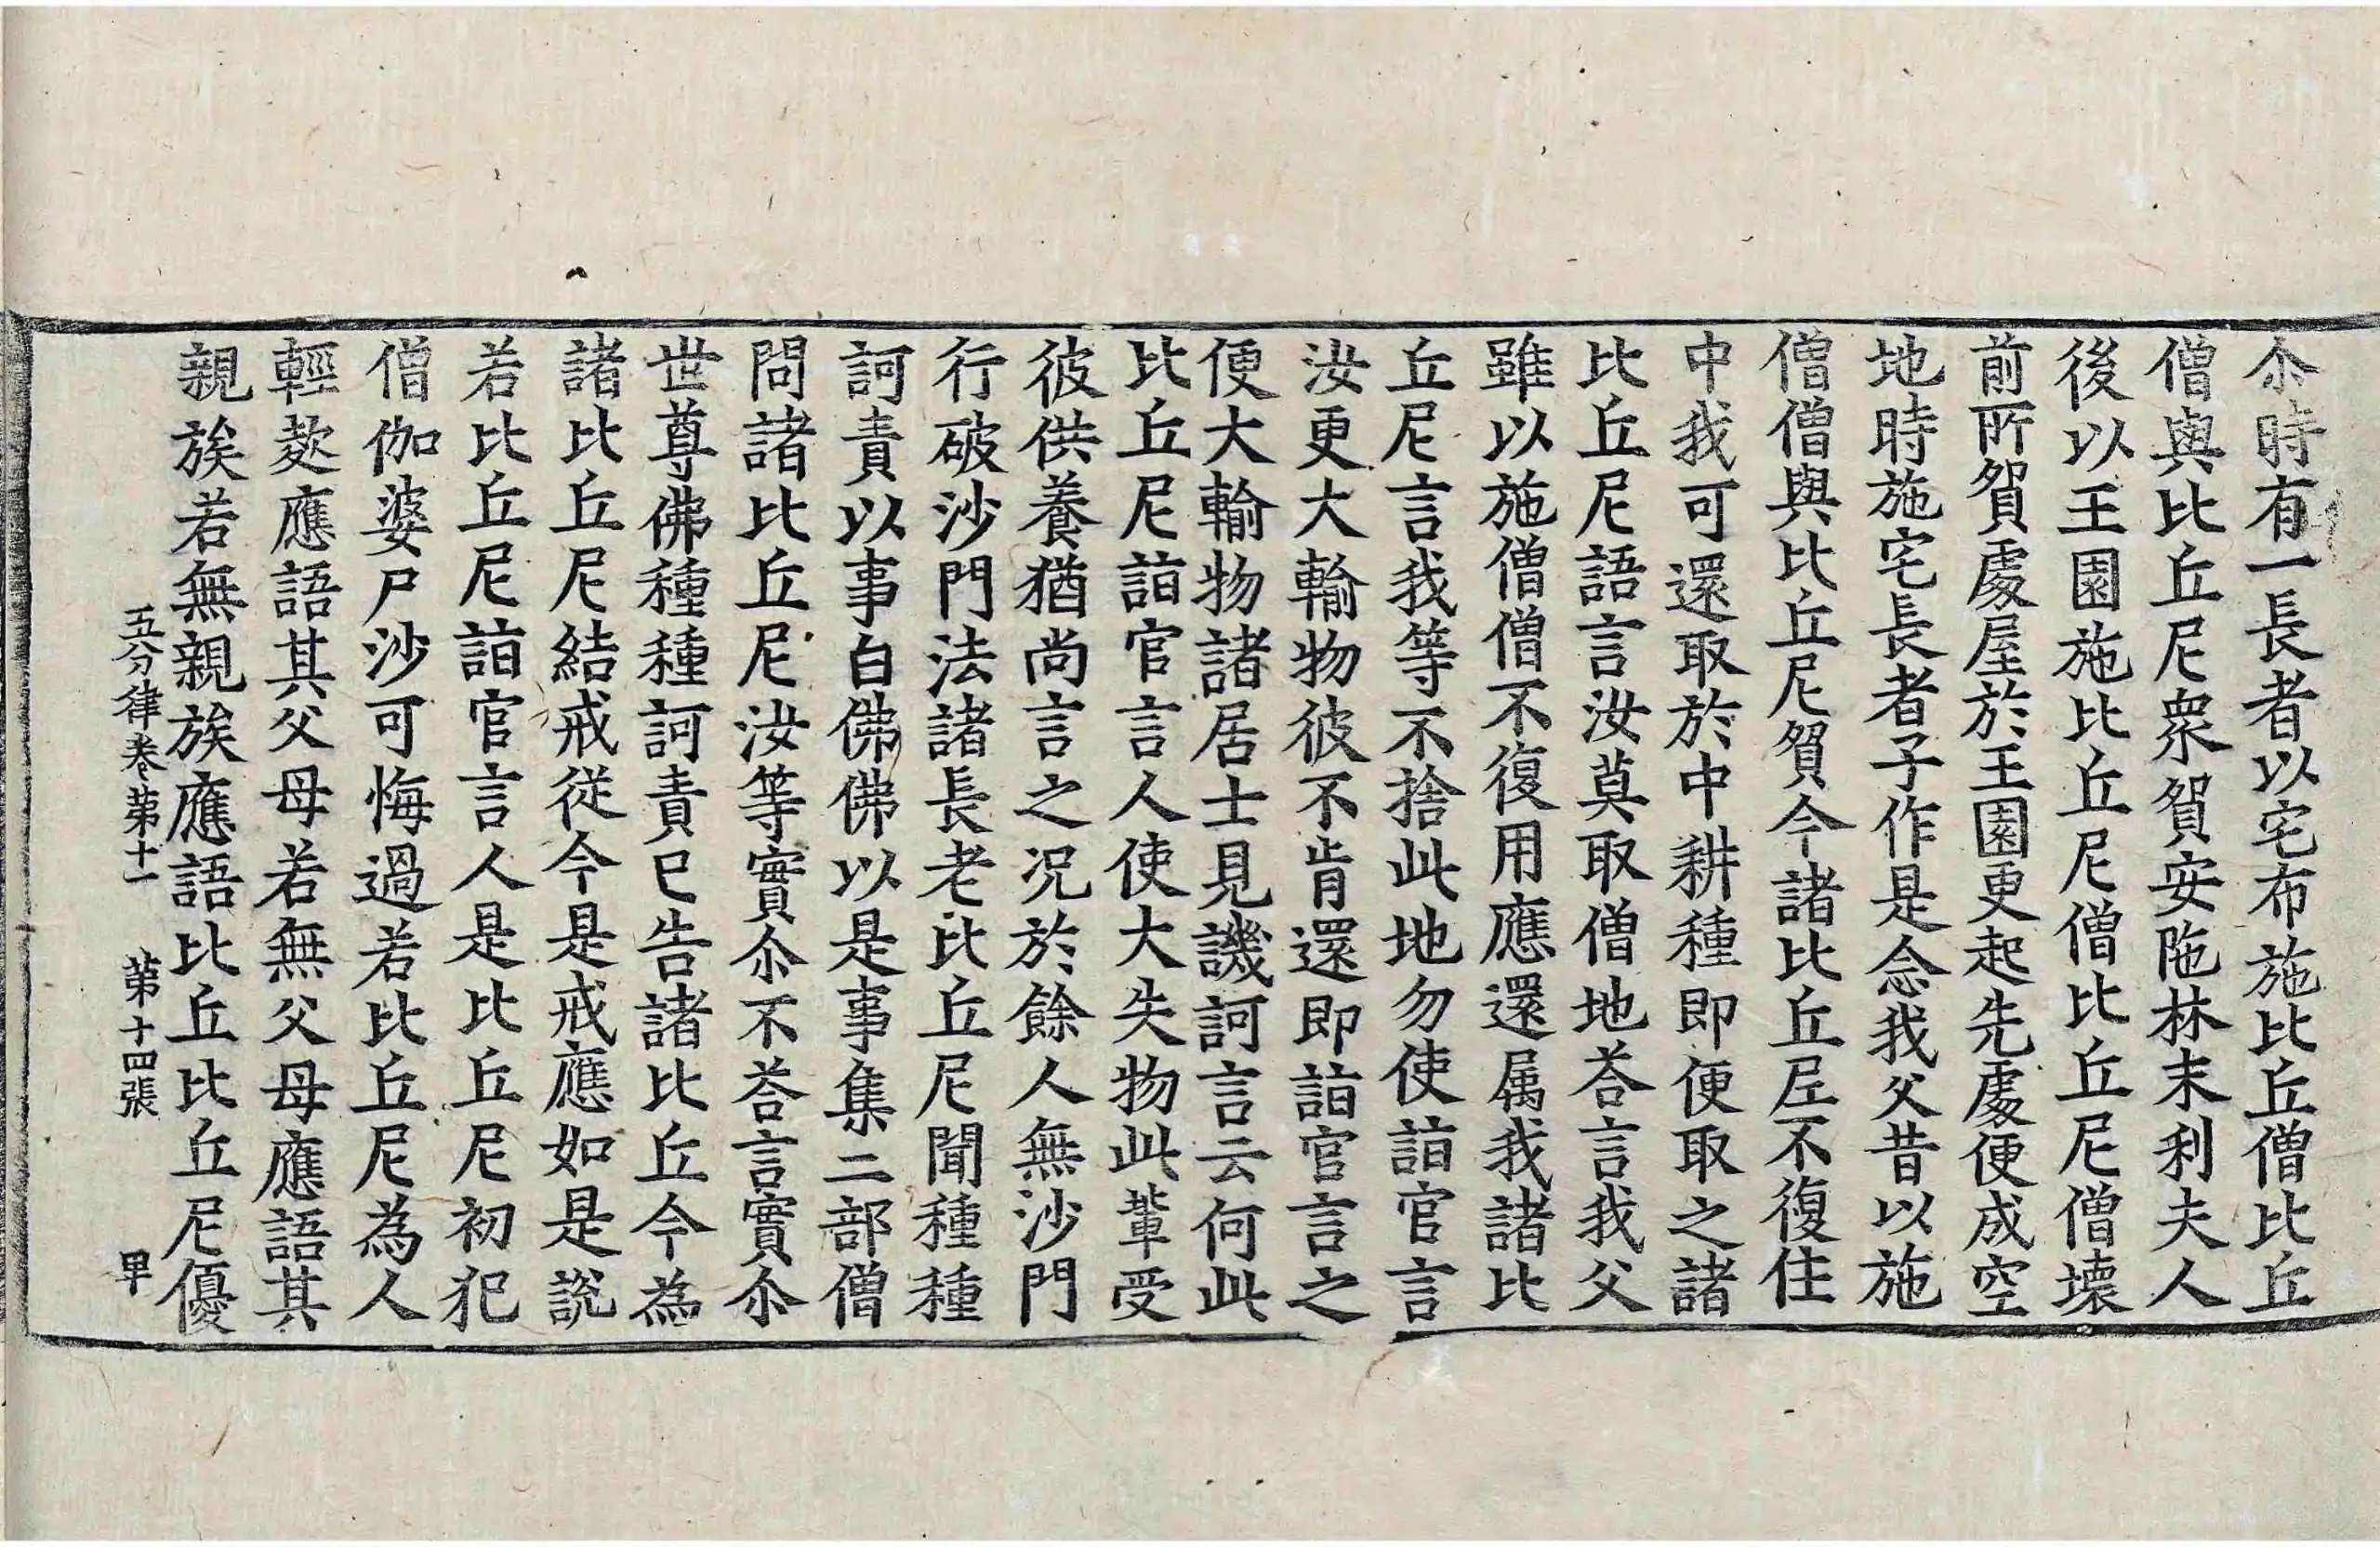 尒時有一長者以宅布施比丘僧比丘
僧與比丘尼衆貿安陁林末利夫人
後以王園施比丘尼僧比丘尼僧壞
前所貿處屋於王園更起先處便成空
地時施宅長者子作是念我父昔以施
僧僧與比丘尼貿今諸比丘尼不復住
中我可還取於中耕種即便取之諸
比丘尼語言汝莫取僧地荅言我父
雖以施僧僧不復用應還属我諸比
丘尼言我等不捨此地勿使詣官言
汝更大輸物彼不肯還即詣官言之
便大輸物諸居士見譏訶言云何此
比丘尼詣官言人使大失物此輩受
彼供養猶尚言之况於餘人無沙門
行破沙門法諸長老比丘尼聞種種
訶責以事白佛佛以是事集二部僧
問諸比丘尼汝等實尒不荅言實尒
世尊佛種種訶責已告諸比丘今為
諸比丘尼結戒從今是戒應如是說
若比丘尼詣官言人是比丘尼初犯
僧伽婆尸沙可悔過若比丘尼為人
輕欺應語其父母若無父母應語其
親族若無親族應語比丘比丘尼優
五分律卷第十一 第十四張 卑